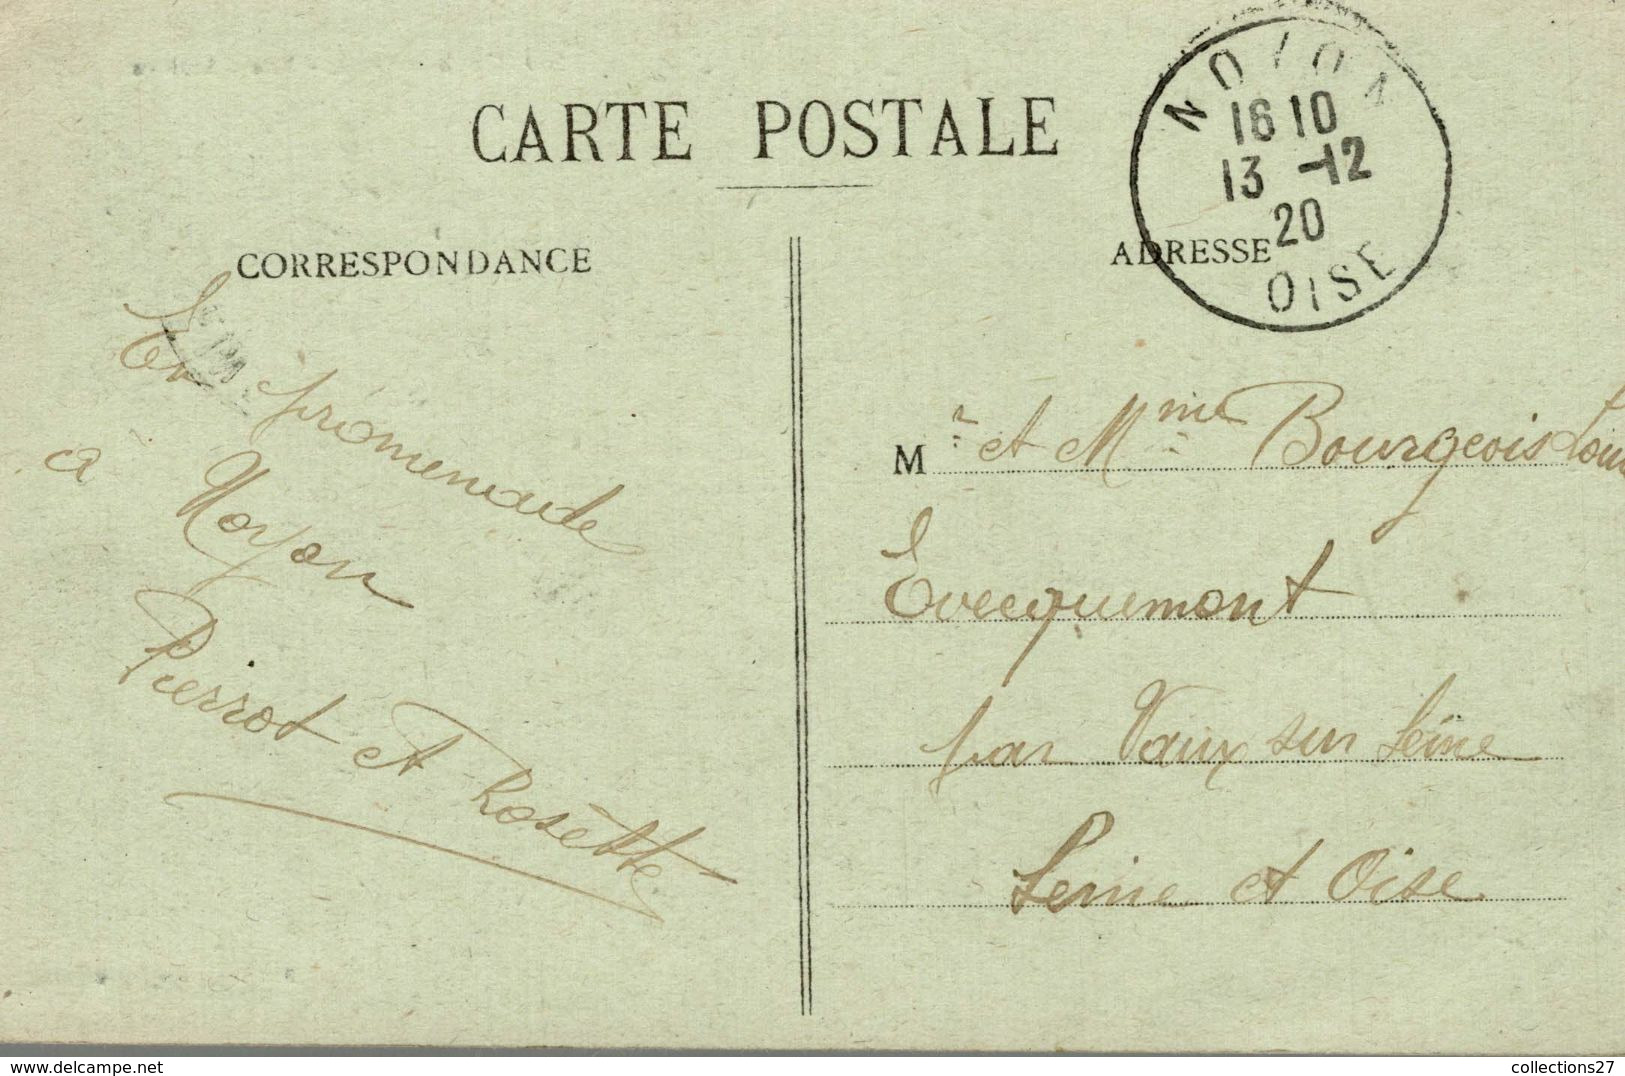 CARTE POSTALE
NOYON
16 10
13 -12
20
OISE
CORRESPONDANCE
En promenade
à Noyon
Pierrot et Rosette
ADRESSE
Mr et Mme Bourgeois Louis
Evecquemont
par Vaux sur Seine
Seine et Oise
delcampe.net
collections27